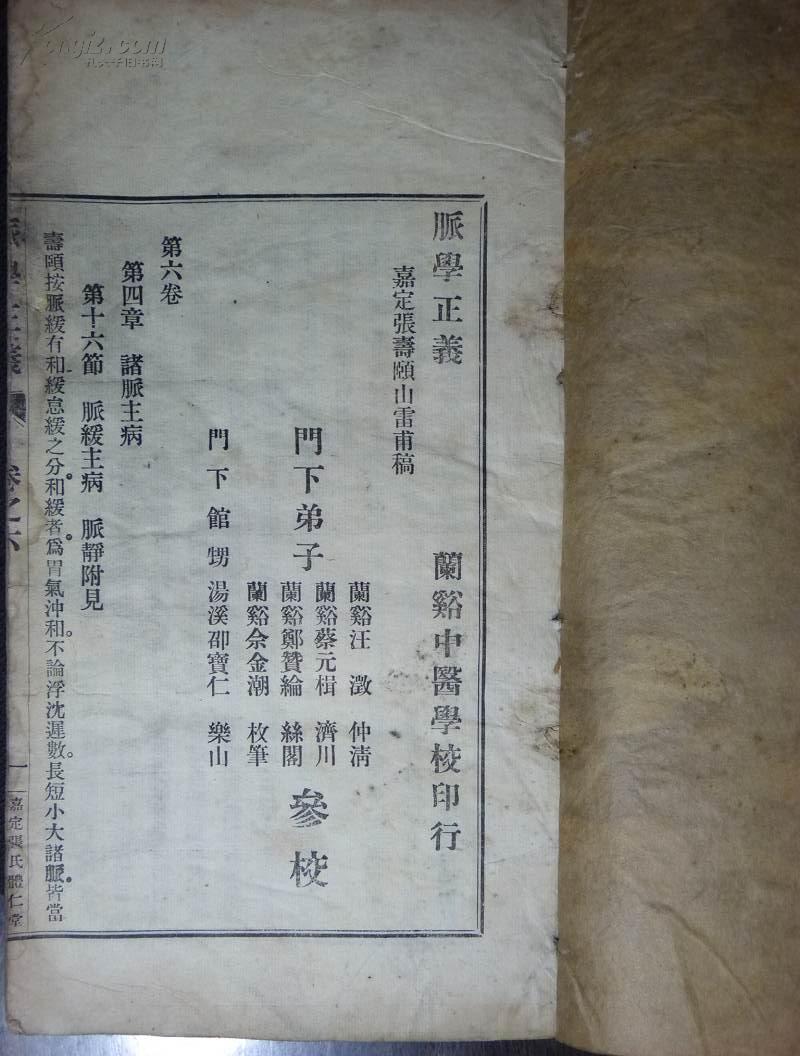 脈學正義
蘭谿中醫學校印行
嘉定張壽頤山雷甫稿
門下弟子
蘭谿汪澂仲清
蘭谿蔡元楫濟川
蘭谿鄭贊綸絲閣
蘭谿佘金潮枚筆
參校
門下館甥湯溪邵寶仁樂山
第六卷
第四章 諸脈主病
第十六節 脈緩主病 脈靜附見
壽頤按脈緩有和緩怠緩之分。和緩者。爲胃氣沖和。不論浮沈遲數。長短小大諸脈。皆當
脈學正義 卷之六 一 嘉定張氏體仁堂
Kongfz.com
孔夫子旧书网